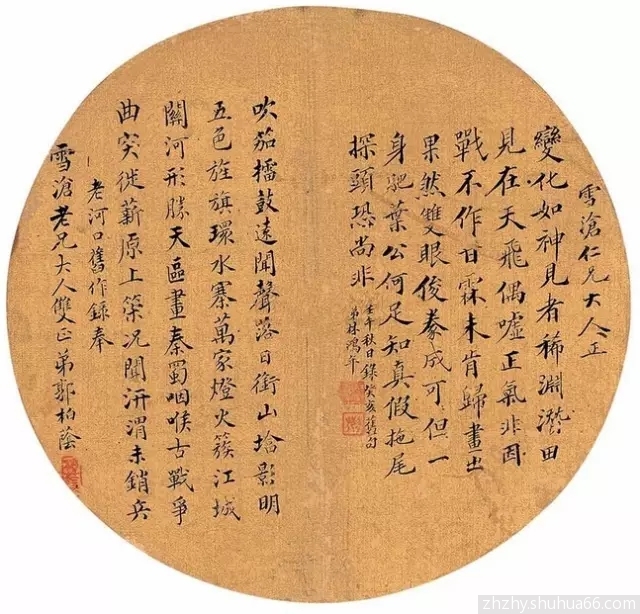 雪滄仁兄大人正
變化如神見者稀淵潛田
見在天飛偶噓正氣非因
戰不作甘霖未肯歸畫出
果然雙眼俊豢成可但一
身肥葉公何足知真假拖尾
探頭恐尚非
壬午秋日錄癸亥舊句
弟林鴻年
吹笳擂鼓遠聞聲落日銜山塔影明
五色旌旗環水寨萬家燈火簇江城
關河形勝天區畫秦蜀咽喉古戰爭
曲突徙薪原上策況聞汧渭未銷兵
老河口舊作錄奉
雪滄老兄大人雙正弟郭柏蔭
zhzhy.shuhua66.com